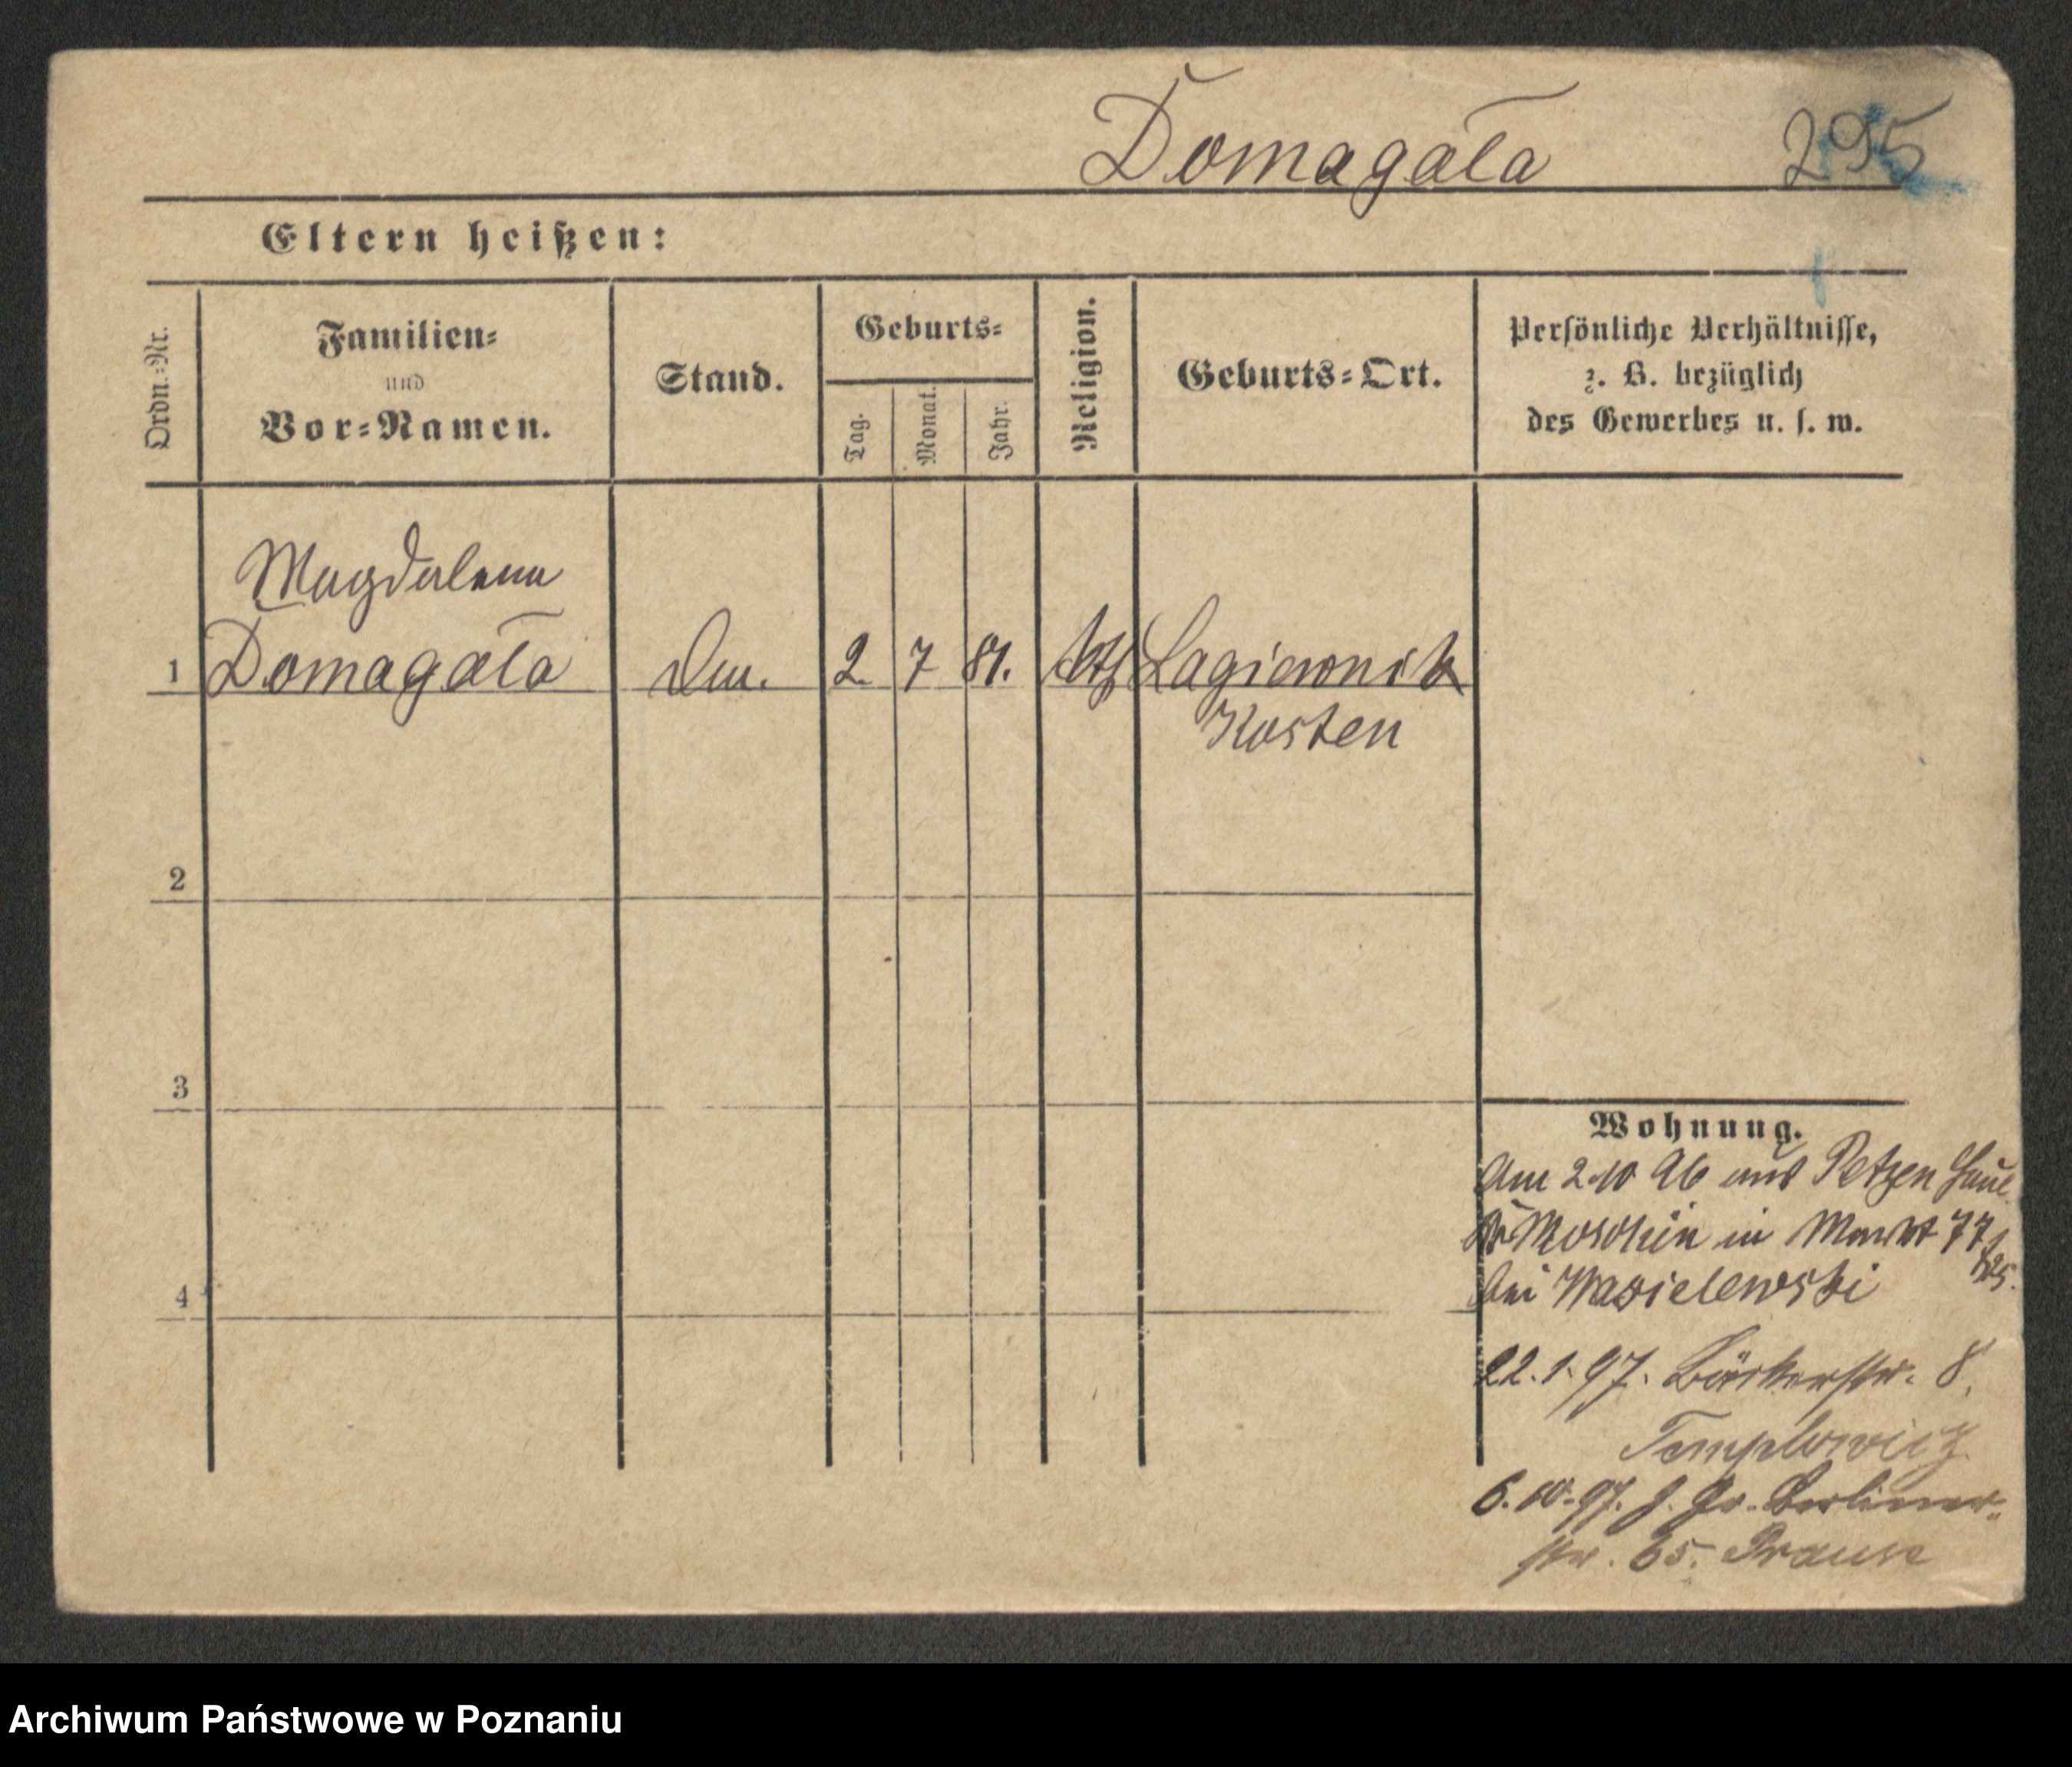 Domagała 295
Eltern heißen:
Ordn.-Nr.
Familien-
und
Vor-Namen.
Stand.
Geburts-
Tag.
Monat.
Jahr.
Religion.
Geburts-Ort.
Persönliche Verhältnisse,
z. B. bezüglich
des Gewerbes u. s. w.
Magdalena
1 Domagała 2 7 81. kth Lagiewnik
Kosten
2
3
Wohnung.
Am 2.10 96 aus Petzen
Moschin in Markt 77
4
bei Wasielewski
22.1.97. Bäckerstr. 8.
Templowicz
6.10.97. Gr. Berliner-
str. 65. Krause
Archiwum Państwowe w Poznaniu